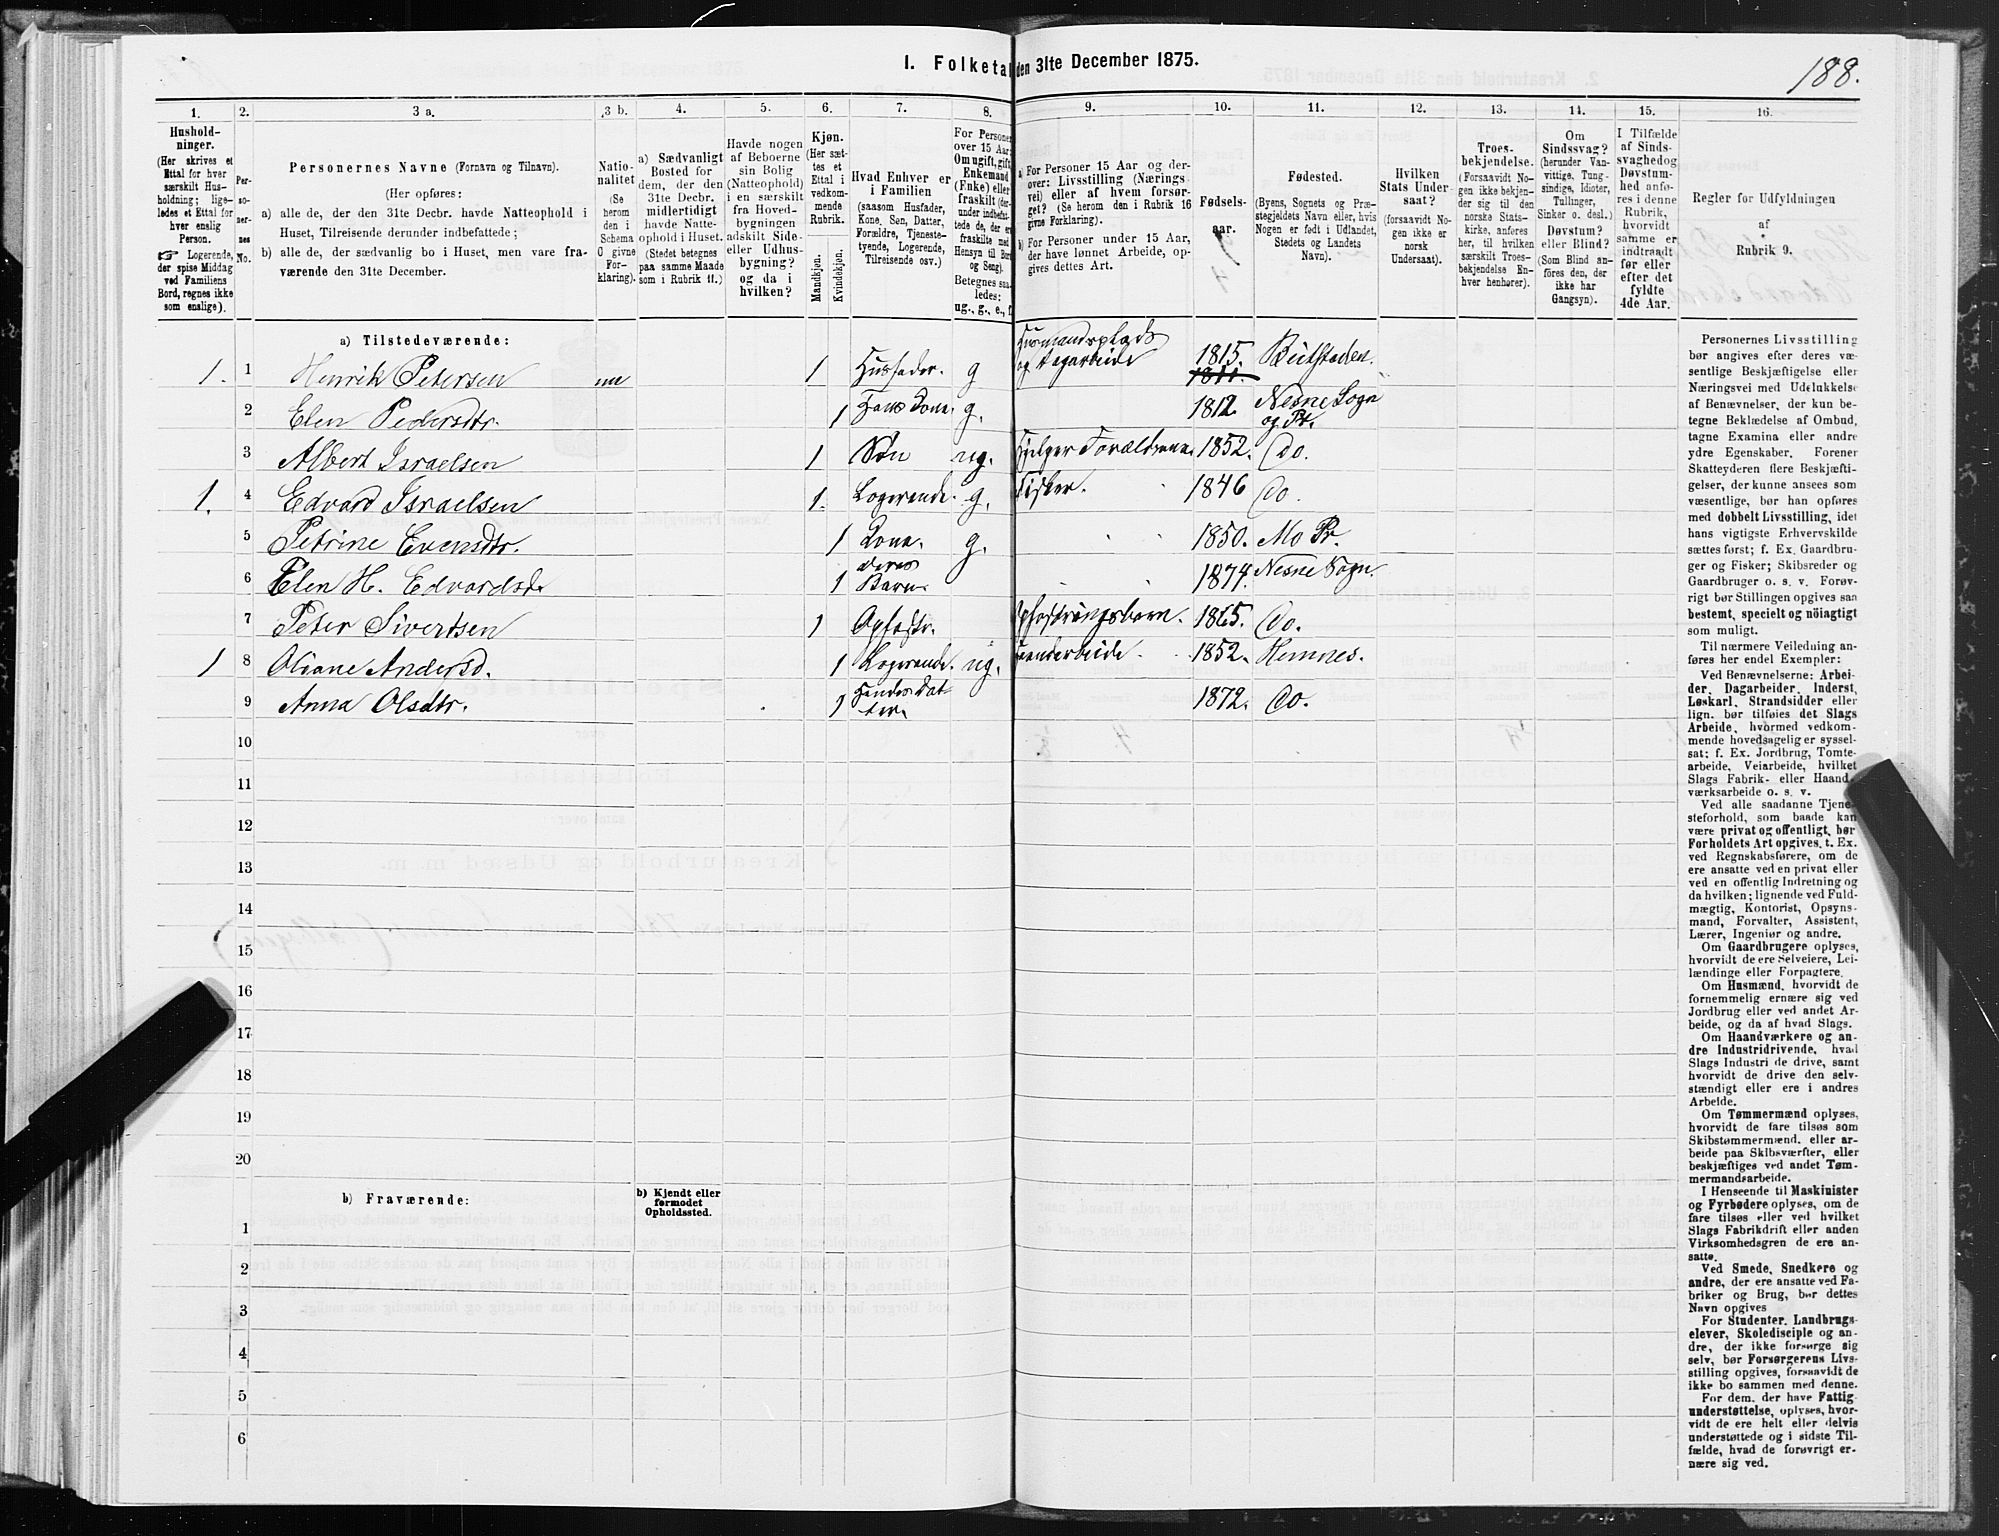 I. Folketal den 31te December 1875.
188.
1. 2. 3 a. 3 b. 4. 5. 6. 7. 8. 9. 10. 11. 12. 13. 14. 15. 16.
Hushold-
ninger.
(Her skrives et
Ettal for hver
særskilt Hus-
holdning; lige-
ledes et Ettal for
hver enslig
Person.
☞ Logerende,
der spise Middag
ved Familiens
Bord, regnes ikke
som enslige).
Per-
so-
ner-
nes
No.
Personernes Navne (Fornavn og Tilnavn).
(Her opføres:
a) alle de, der den 31te Decbr. havde Natteophold i
Huset, Tilreisende derunder indbefattede;
b) alle de, der sædvanlig bo i Huset, men vare fra-
værende den 31te December.
Natio-
nalitet
(Se
herom
den i
Schema
O givne
For-
klaring).
a) Sædvanligt
Bosted for
dem, der den
31te Decbr.
midlertidigt
havde Natte-
ophold i Huset.
(Stedet betegnes
paa samme Maade
som i Rubrik 11.)
Havde nogen
af Beboerne
sin Bolig
(Natteophold)
i en særskilt
fra Hoved-
bygningen
adskilt Side-
eller Udhus-
bygning?
og da i
hvilken?
Kjøn.
(Her sæt-
tes et
Ettal i
vedkom-
mende
Rubrik.
Mandkjøn.
Kvindekjøn.
Hvad Enhver er
i Familien
(saasom Husfader,
Kone, Søn, Datter,
Forældre, Tjeneste-
tyende, Logerende,
Tilreisende osv.)
For Personer
over 15 Aar:
Om ugift, gift,
Enkemand
(Enke) eller
fraskilt (der-
under indbefat-
tede de, der er
fraskilte med
Hensyn til Bord
og Seng).
Betegnes saa-
ledes:
ug., g., e., f.
a) For Personer 15 Aar og der-
over: Livsstilling (Nærings-
vei) eller af hvem forsør-
get? (Se herom den i Rubrik 16
givne Forklaring).
b) For Personer under 15 Aar,
der have lønnet Arbeide, op-
gives dettes Art.
Fødsels-
aar.
Fødested.
(Byens, Sognets og Præ-
stegjeldets Navn eller, hvis
Nogen er født i Udlandet,
Stedets og Landets
Navn).
Hvilken
Stats Under-
saat?
(forsaavidt No-
gen ikke er
norsk
Undersaat).
Troes-
bekjendelse.
(Forsaavidt No-
gen ikke bekjen-
der sig til den
norske Stats-
kirke, anføres
her, til hvilken
særskilt Troes-
bekjendelse En-
hver henhører).
Om
Sindssvag?
(herunder Van-
vittige, Tung-
sindige, Idioter,
Tullinger,
Sinker o. desl.)
Døvstum?
eller Blind?
(Som Blind an-
føres den, der
ikke har
Gangsyn).
I Tilfælde
af Sinds-
svaghed og
Døvstum-
hed anfø-
res i denne
Rubrik,
hvorvidt
samme er
indtraadt
før eller
efter det
fyldte
4de Aar.
Regler for Udfyldningen
af
Rubrik 9.
a) Tilstedeværende:
1. 1 Henrik Petersen nn 1 Husfader. g Husmandsplads og Dagarbeide 1815. 1811. Beitstaden.
2 Elen Pedersdtr. 1 Hans Kone. g. 1812. Nesne Sogn og Pr.
3 Albert Israelsen 1 Søn ug. Hjelper Forældrene. 1852. Do.
1. 4 Edvard Israelsen 1. Logerende. g. Fisker. 1846 Do.
5 Petrine Evensdtr. 1 Kone. g. 1850. Mo Pr.
6 Elen H. Edvardsd. 1 deres Barn. 1874. Nesne Sogn.
7 Peter Sivertsen 1 Opfostr. Opfostringsbarn. 1865. Do.
1 8 Oliane Andersd. 1 Logerende. ug. Haandarbeide. 1852. Hemnes.
9 Anna Olsdtr. 1 Hendes Datter. 1872. Do.
10
11
12
13
14
15
16
17
18
19
20
b) Fraværende:
b) Kjendt eller
formodet
Opholdssted.
1
2
3
4
5
6
Personernes Livsstilling
bør angives efter deres væ-
sentlige Beskjæftigelse eller
Næringsvei med Udelukkelse
af Benævnelser, der kun be-
tegne Beklædelse af Ombud,
tagne Examina eller andre
ydre Egenskaber. Forener
Skatteyderen flere Beskjæfti-
gelser, der kunne ansees som
væsentlige, bør han opføres
med dobbelt Livsstilling, idet
hans vigtigste Erhvervskilde
sættes først; f. Ex. Gaardbru-
ger og Fisker; Skibsreder og
Gaardbruger o. s. v. Forøv-
rigt bør Stillingen opgives saa
bestemt, specielt og nöiagtigt
som muligt.
Til nærmere Veiledning an-
føres her endel Exempler:
Ved Benævnelserne: Arbei-
der, Dagarbeider, Inderst,
Løskarl, Strandsidder eller
lign. bør tilføies det Slags
Arbeide, hvormed vedkom-
mende hovedsagelig er syssel-
sat; f. Ex. Jordbrug, Tomte-
arbeide, Veiarbeide, hvilket
Slags Fabrik- eller Haand-
værksarbeide o. s. v.
Ved alle saadanne Tjene-
steforhold, som baade kan
være privat og offentligt, bør
Forholdets Art opgives, t. Ex.
ved Regnskabsførere, om de
ere ansatte ved en privat eller
ved en offentlig Indretning og
da hvilken; lignende ved Fuld-
mægtig, Kontorist, Opsyns-
mand, Forvalter, Assistent,
Lærer, Ingeniør og andre.
Om Gaardbrugere oplyses,
hvorvidt de ere Selveiere, Lei-
lændinge eller Forpagtere.
Om Husmænd, hvorvidt de
fornemmelig ernære sig ved
Jordbrug eller ved andet Ar-
beide, og da af hvad Slags.
Om Haandværkere og an-
dre Industridrivende, hvad
Slags Industri de drive, samt
hvorvidt de drive den selv-
stændigt eller ere i andres
Arbeide.
Om Tømmermænd oplyses,
hvorvidt de fare tilsøs som
Skibstømmermænd, eller ar-
beide paa Skibsværfter, eller
beskjæftiges ved andet Tøm-
mermandsarbeide.
I Henseende til Maskinister
og Fyrbødere oplyses, om de
fare tilsøs eller ved hvilket
Slags Fabrikdrift eller anden
Virksomhedsgren de ere an-
satte.
Ved Smede, Snedkere og
andre, der ere ansatte ved Fa-
briker og Brug, bør dettes
Navn opgives
For Studenter, Landbrugs-
elever, Skoledisciple og an-
dre, der ikke forsørge sig
selv, bør Forsørgerens Livs-
stilling opgives, forsaavidt de
ikke bo sammen med denne.
For dem, der have Fattig-
understøttelse, oplyses, hvor-
vidt de ere helt eller delvis
understøttede og i sidste Til-
fælde, hvad de forøvrigt er-
nære sig ved.